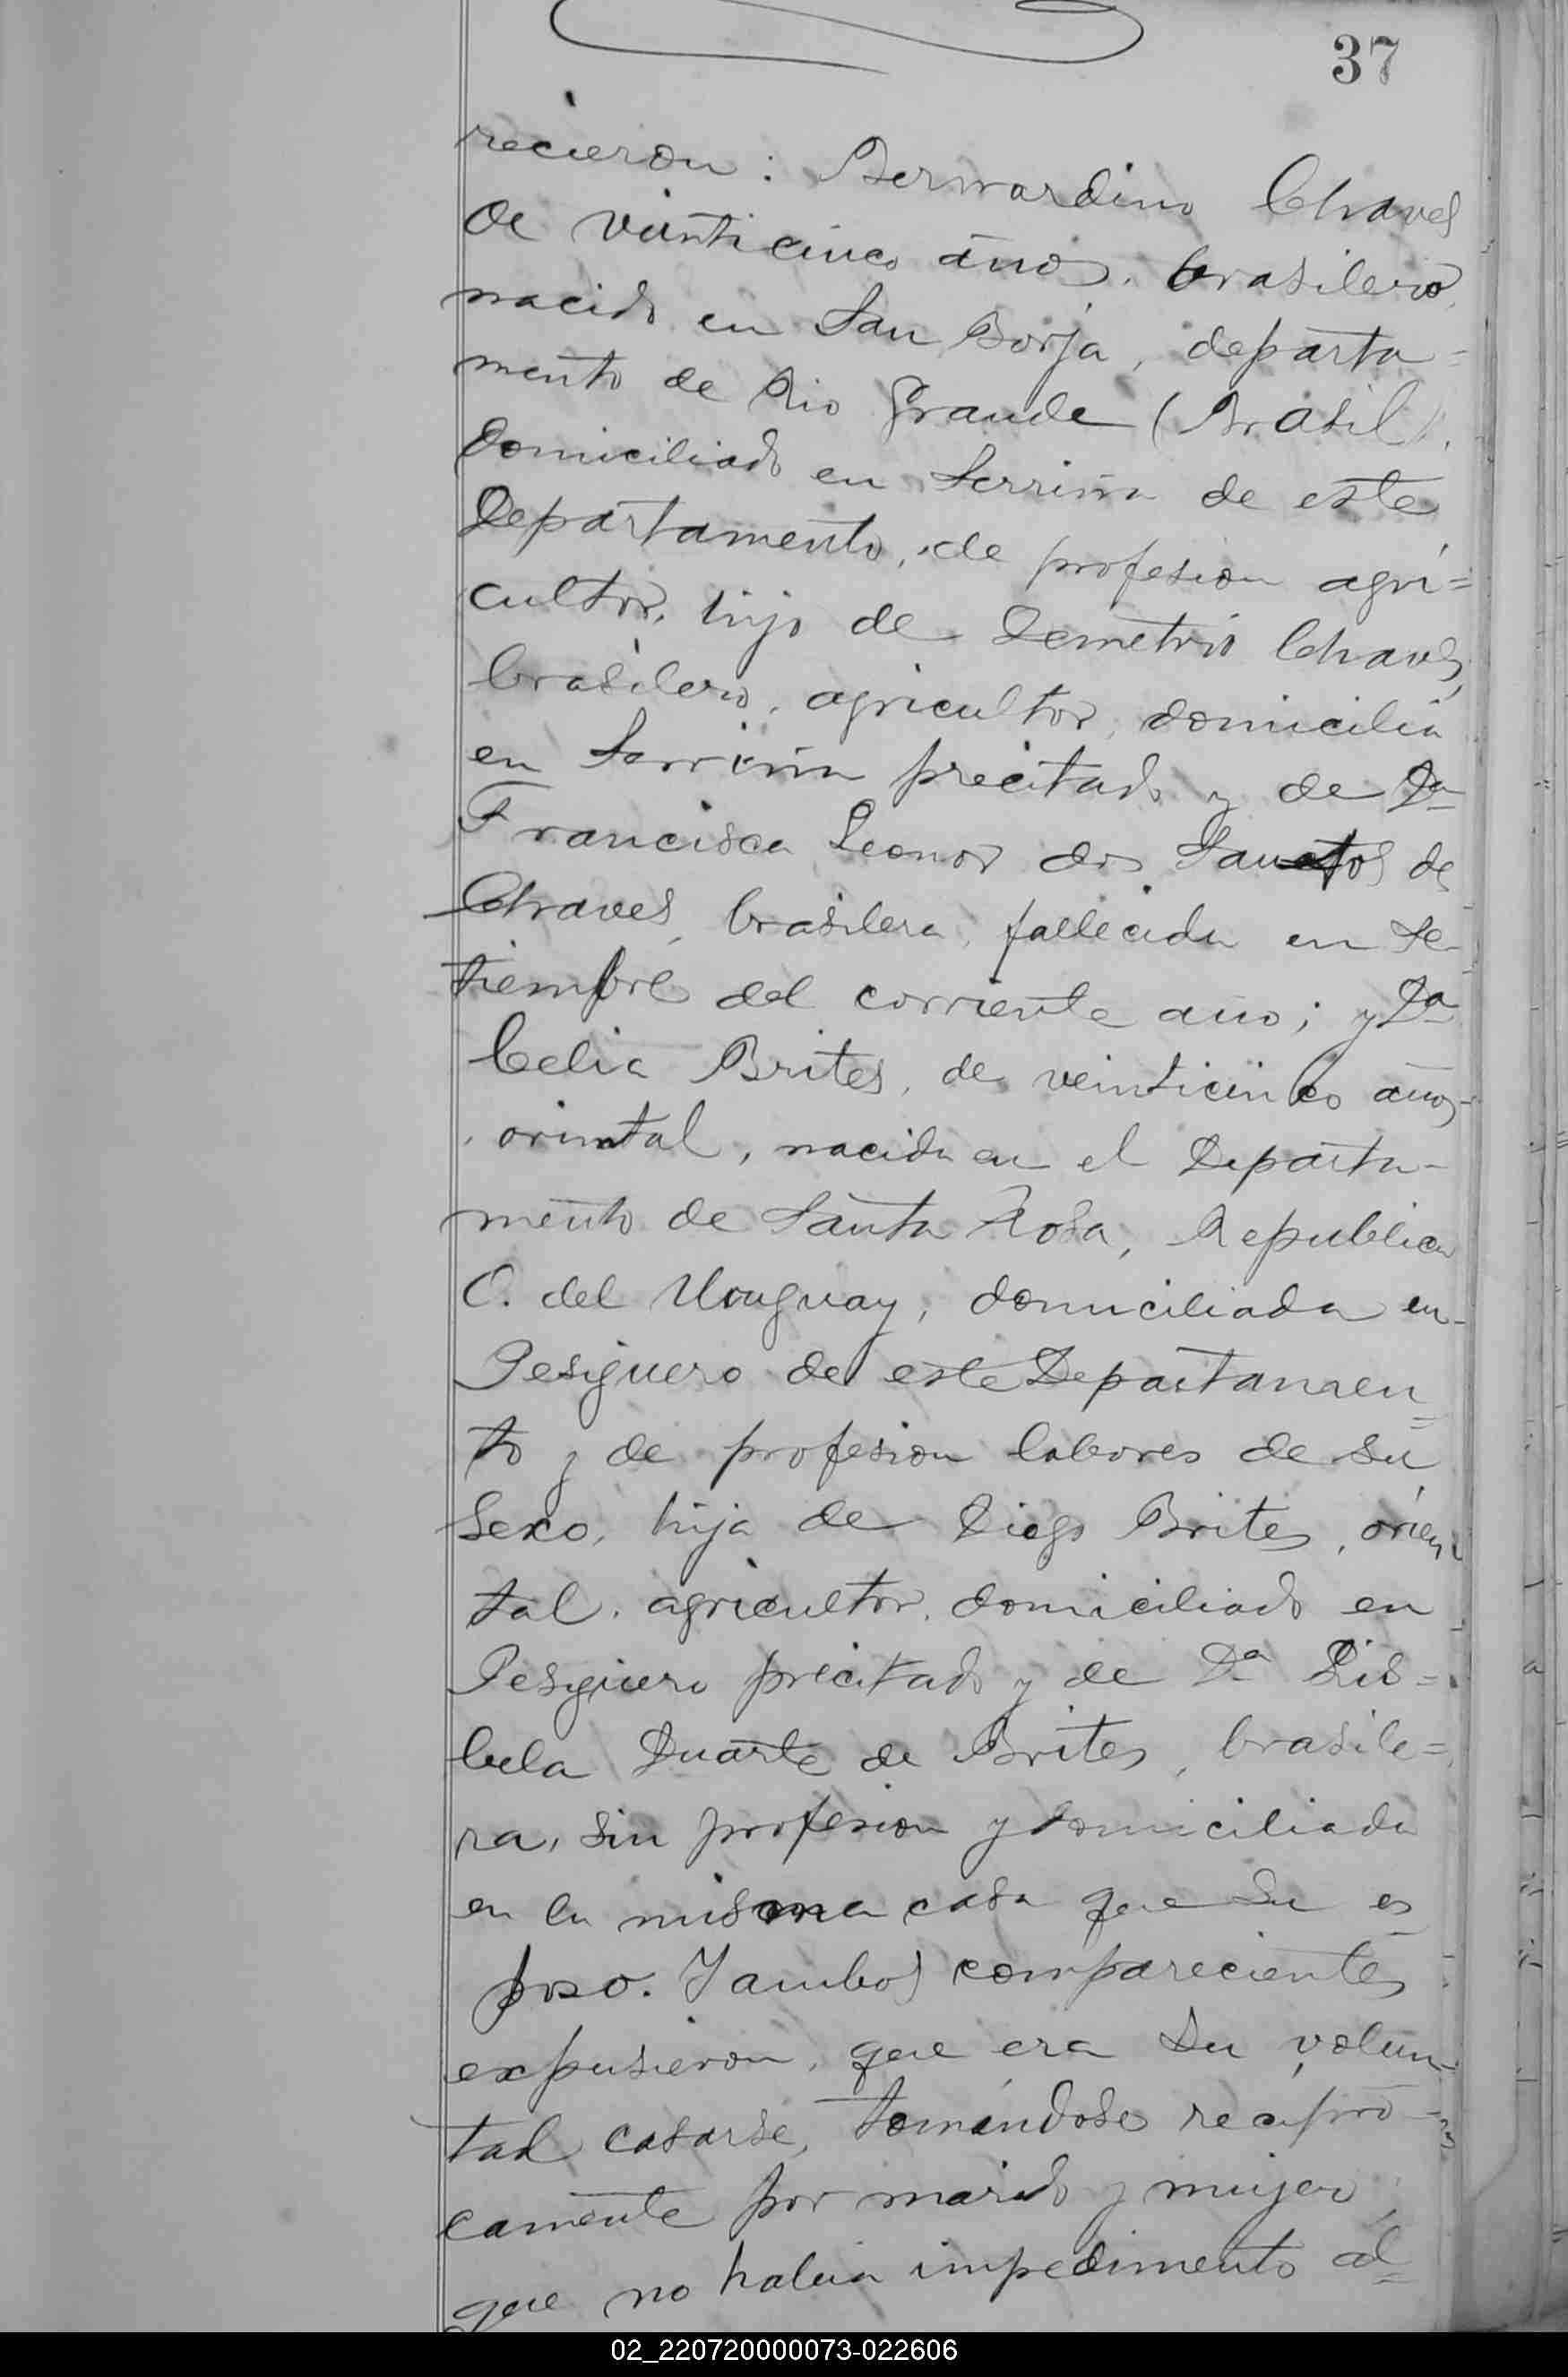 37
recieron: Bernardino Chaves
de vienticinco años, brasilero,
nacido en San Borja, departa=
mento de Rio Grande (Brasil),
domiciliado en Serrino de este
Departamento, de profesion agri=
cultor, hijo de Demetrio Chaves,
brasilero, agricultor, domicilia
en Serrino precitado y de Da
Francisca Leonor dos Santos de
Chaves, brasilera, fallecida en Se-
tiembre del corriente año; y Da
Celia Brites, de veinticinco años
oriental, nacida en el Departa-
mento de Santa Rosa, Republica
O. del Uruguay, domiciliada en
Pesiguero de este Departamen=
to y de profesion labores de su
sexo, hija de Diego Brites, orien
tal, agricultor, domiciliado en
Pesiguero precitado y de Da Lis=
bela Duarte de Brites, brasile=
ra, sin profesion y domiciliada
en la misma casa que su es
poso. Y ambos comparecientes
expusieron, que era su volun-
tad casarse, tomándose recipro-
camente por marido y mujer,
que no habia impedimento al=
02_220720000073-022606